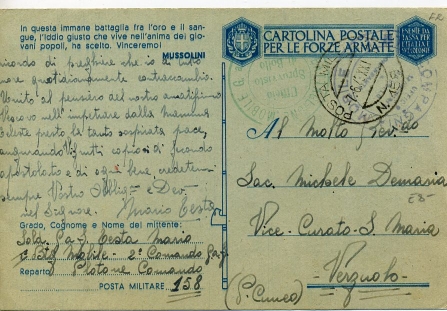 In questa immane battaglia fra l'oro e il san-
gue, l'Iddio giusto che vive nell'anima dei gio-
vani popoli, ha scelto. Vinceremo!
MUSSOLINI
ricordo di preghiere che io di tutto
cuore quotidianamente contraccambio.
Unito al pensiero del nostro amatissimo
Vescovo nell'impetrare dalla Mamma
Celeste presto la tanto sospirata pace,
augurando Vi frutti copiosi di fecondo
apostolato e di ogni bene credetemi
sempre Vostro Obblig. e Dev.
nel Signore. Mario Testa
Grado, Cognome e Nome del mittente:
Sold. Testa Mario
Btg Mobile - 2°
Reparto Plotone Comando
POSTA MILITARE 158
CARTOLINA POSTALE
PER LE FORZE ARMATE
POSTA MILITARE
N. 158
Al Molto Rev.do
Sac. Michele Demaria
Vice-Curato - S. Maria
Verzuolo
(P. Cuneo)